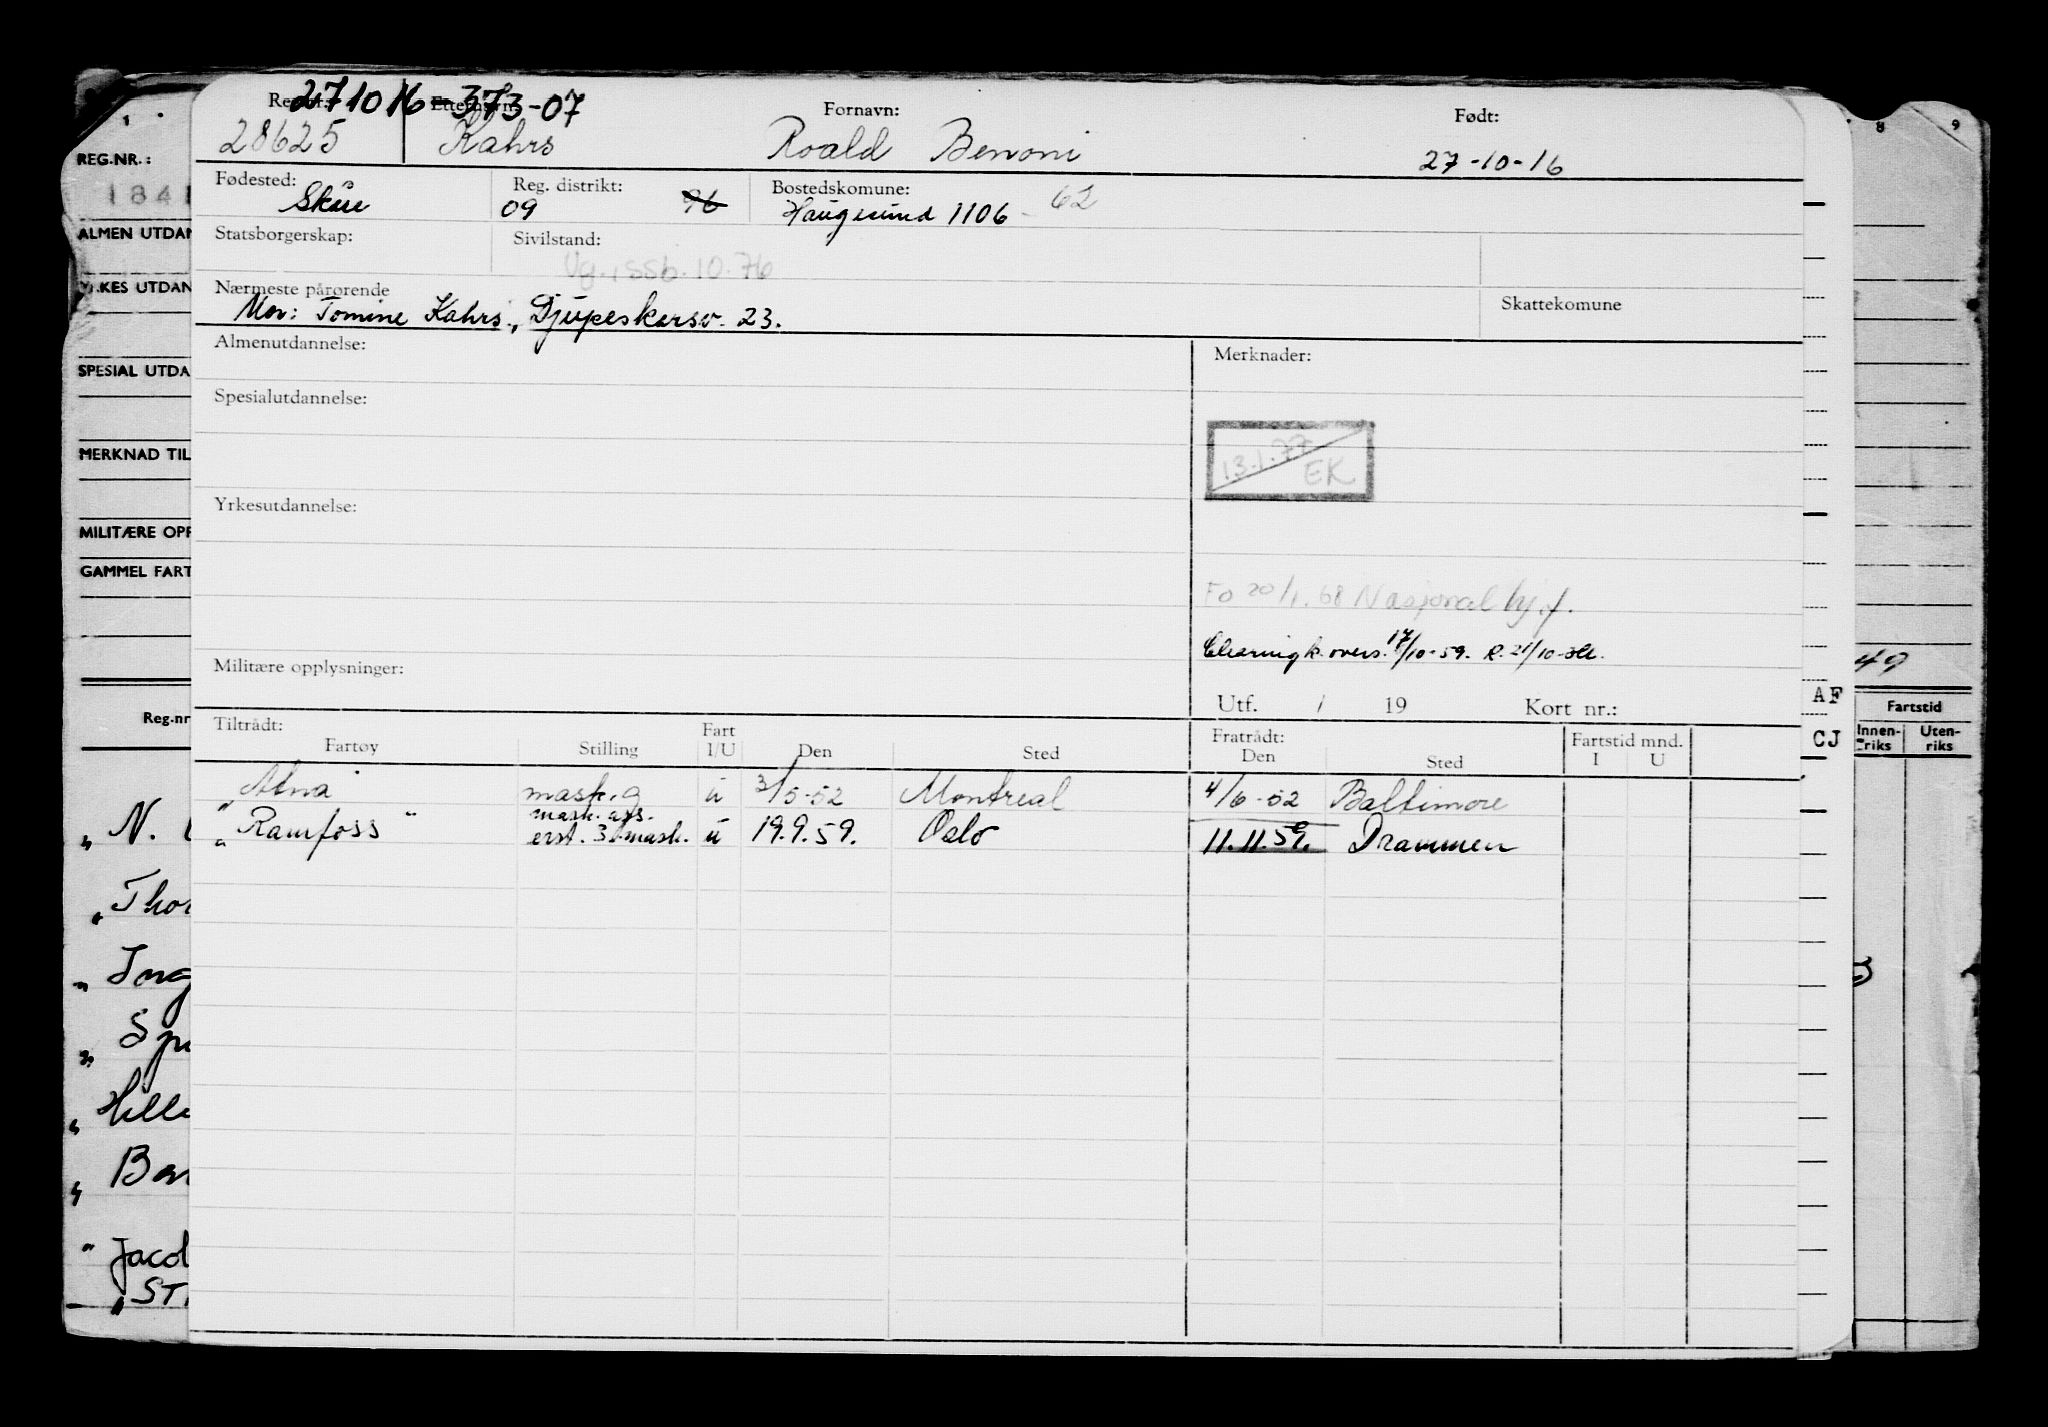 271016 373-07
Reg.nr. Etternavn: Fornavn: Født:
28625 Kahrs Roald Benoni 27-10-16
Fødested: Reg. distrikt: Bostedskomune:
09 96 Haugesund 1106 - 62
Statsborgerskap: Sivilstand:
Vg., ssb. 10.76
Nærmeste pårørende Skattekomune
Mor: Tomine Kahrs, Djupeskarsv. 23.
Almenutdannelse: Merknader:
Spesialutdannelse:
13.1.77
EK
Yrkesutdannelse:
Fo 20/1.68 Nasjonal hj.f.
Clearingk. overs. 17/10-59. R. 21/10
Militære opplysninger:
Utf. / 19 Kort nr.:
Tiltrådt: Fart Fratrådt: Fartstid mnd.
Fartøy Stilling I/U Den Sted Den Sted I U
" Atna mask.g u 3/5-52 Montreal 4/6-52 Baltimore
mask. ass.
" Ramfoss " erst. 3. mask. u 19.9.59. Oslo 11.11.59. Drammen
1
REG.NR.:
1841
ALMEN UTDAN
YRKES UTDAN
SPESIAL UTDA
MERKNAD TIL
MILITÆRE OPP
GAMMEL FART
Reg.nr
" N.
" Thor
" Ing
" Hille
" Jacol
" ST
8 9
49
AF
CJ
Fartstid
Innen-
riks
Uten-
riks